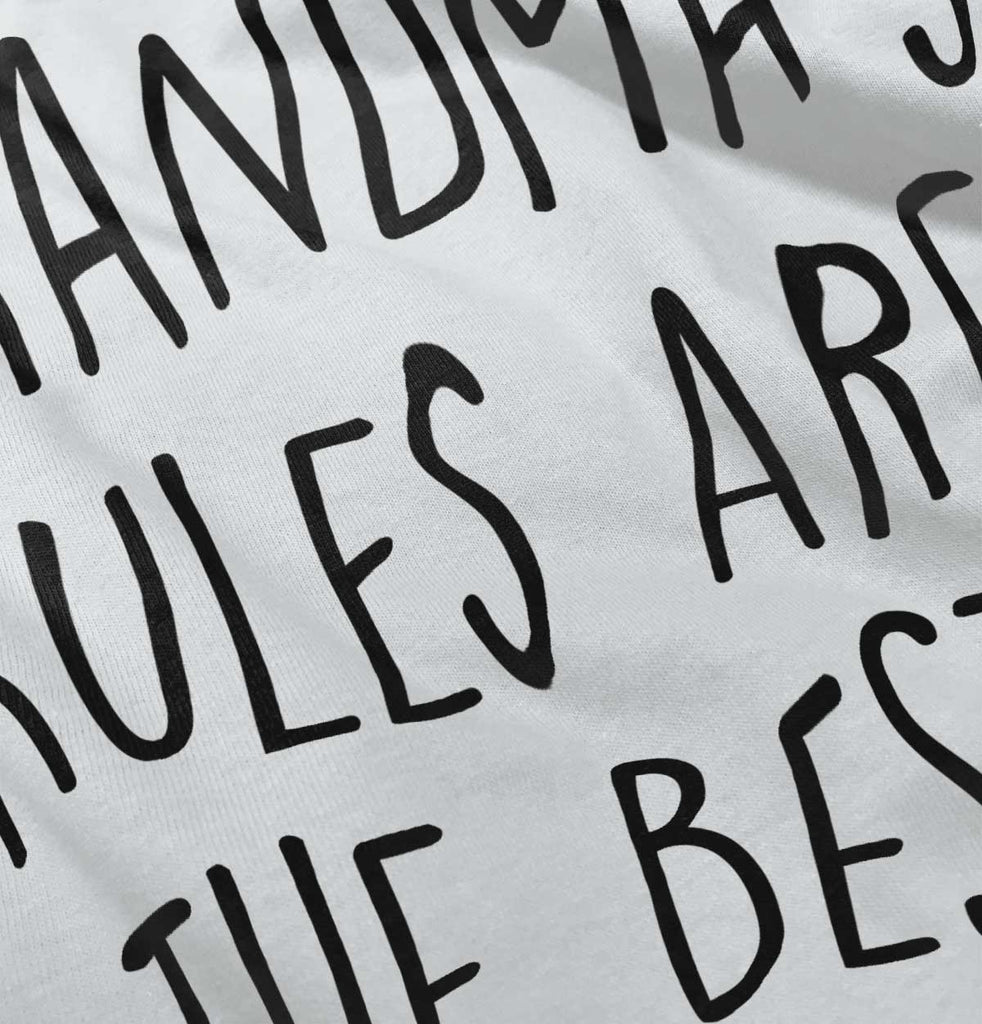 GRANDMA'S
RULES ARE
THE BEST